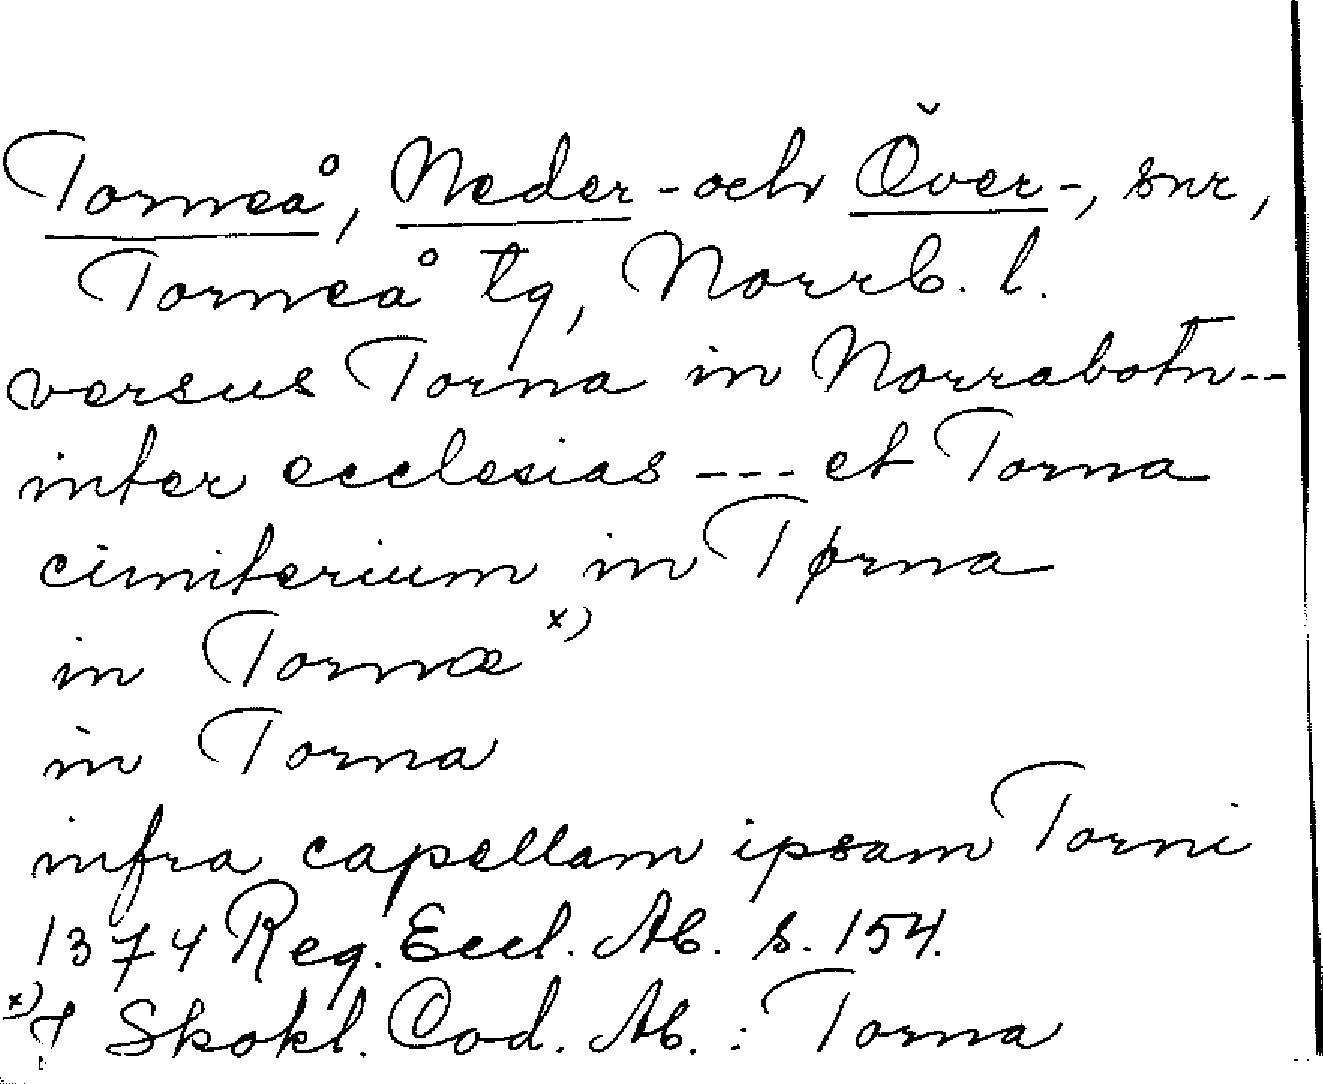 Torneå, Neder- och Över-, snr,
Torneå tg, Norrb. l.
versus Torna in Norrabotn--
inter ecclesias --- et Torna
cimiterium in Tørna
in Tornæ x)
in Torna
infra capellam ipsam Torni
1374 Reg. Eccl. Ab. s. 154.
x) I Skokl. Cod. Ab.: Torna